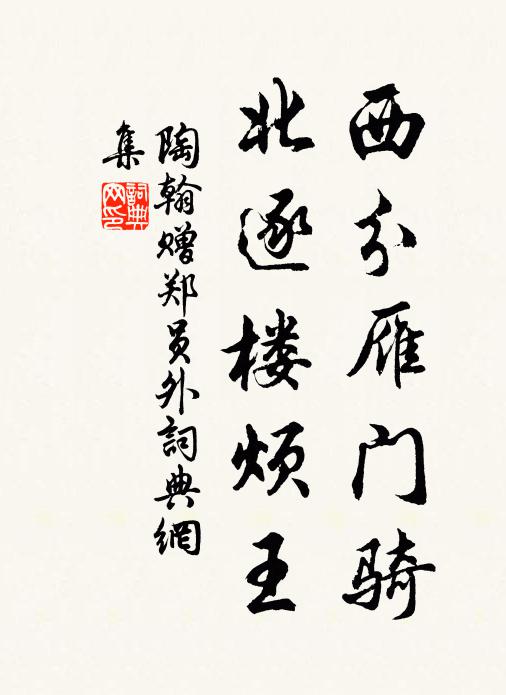 西分雁门骑
北逐楼烦王
陶翰赠郑员外詞典網
集
詞典
网印